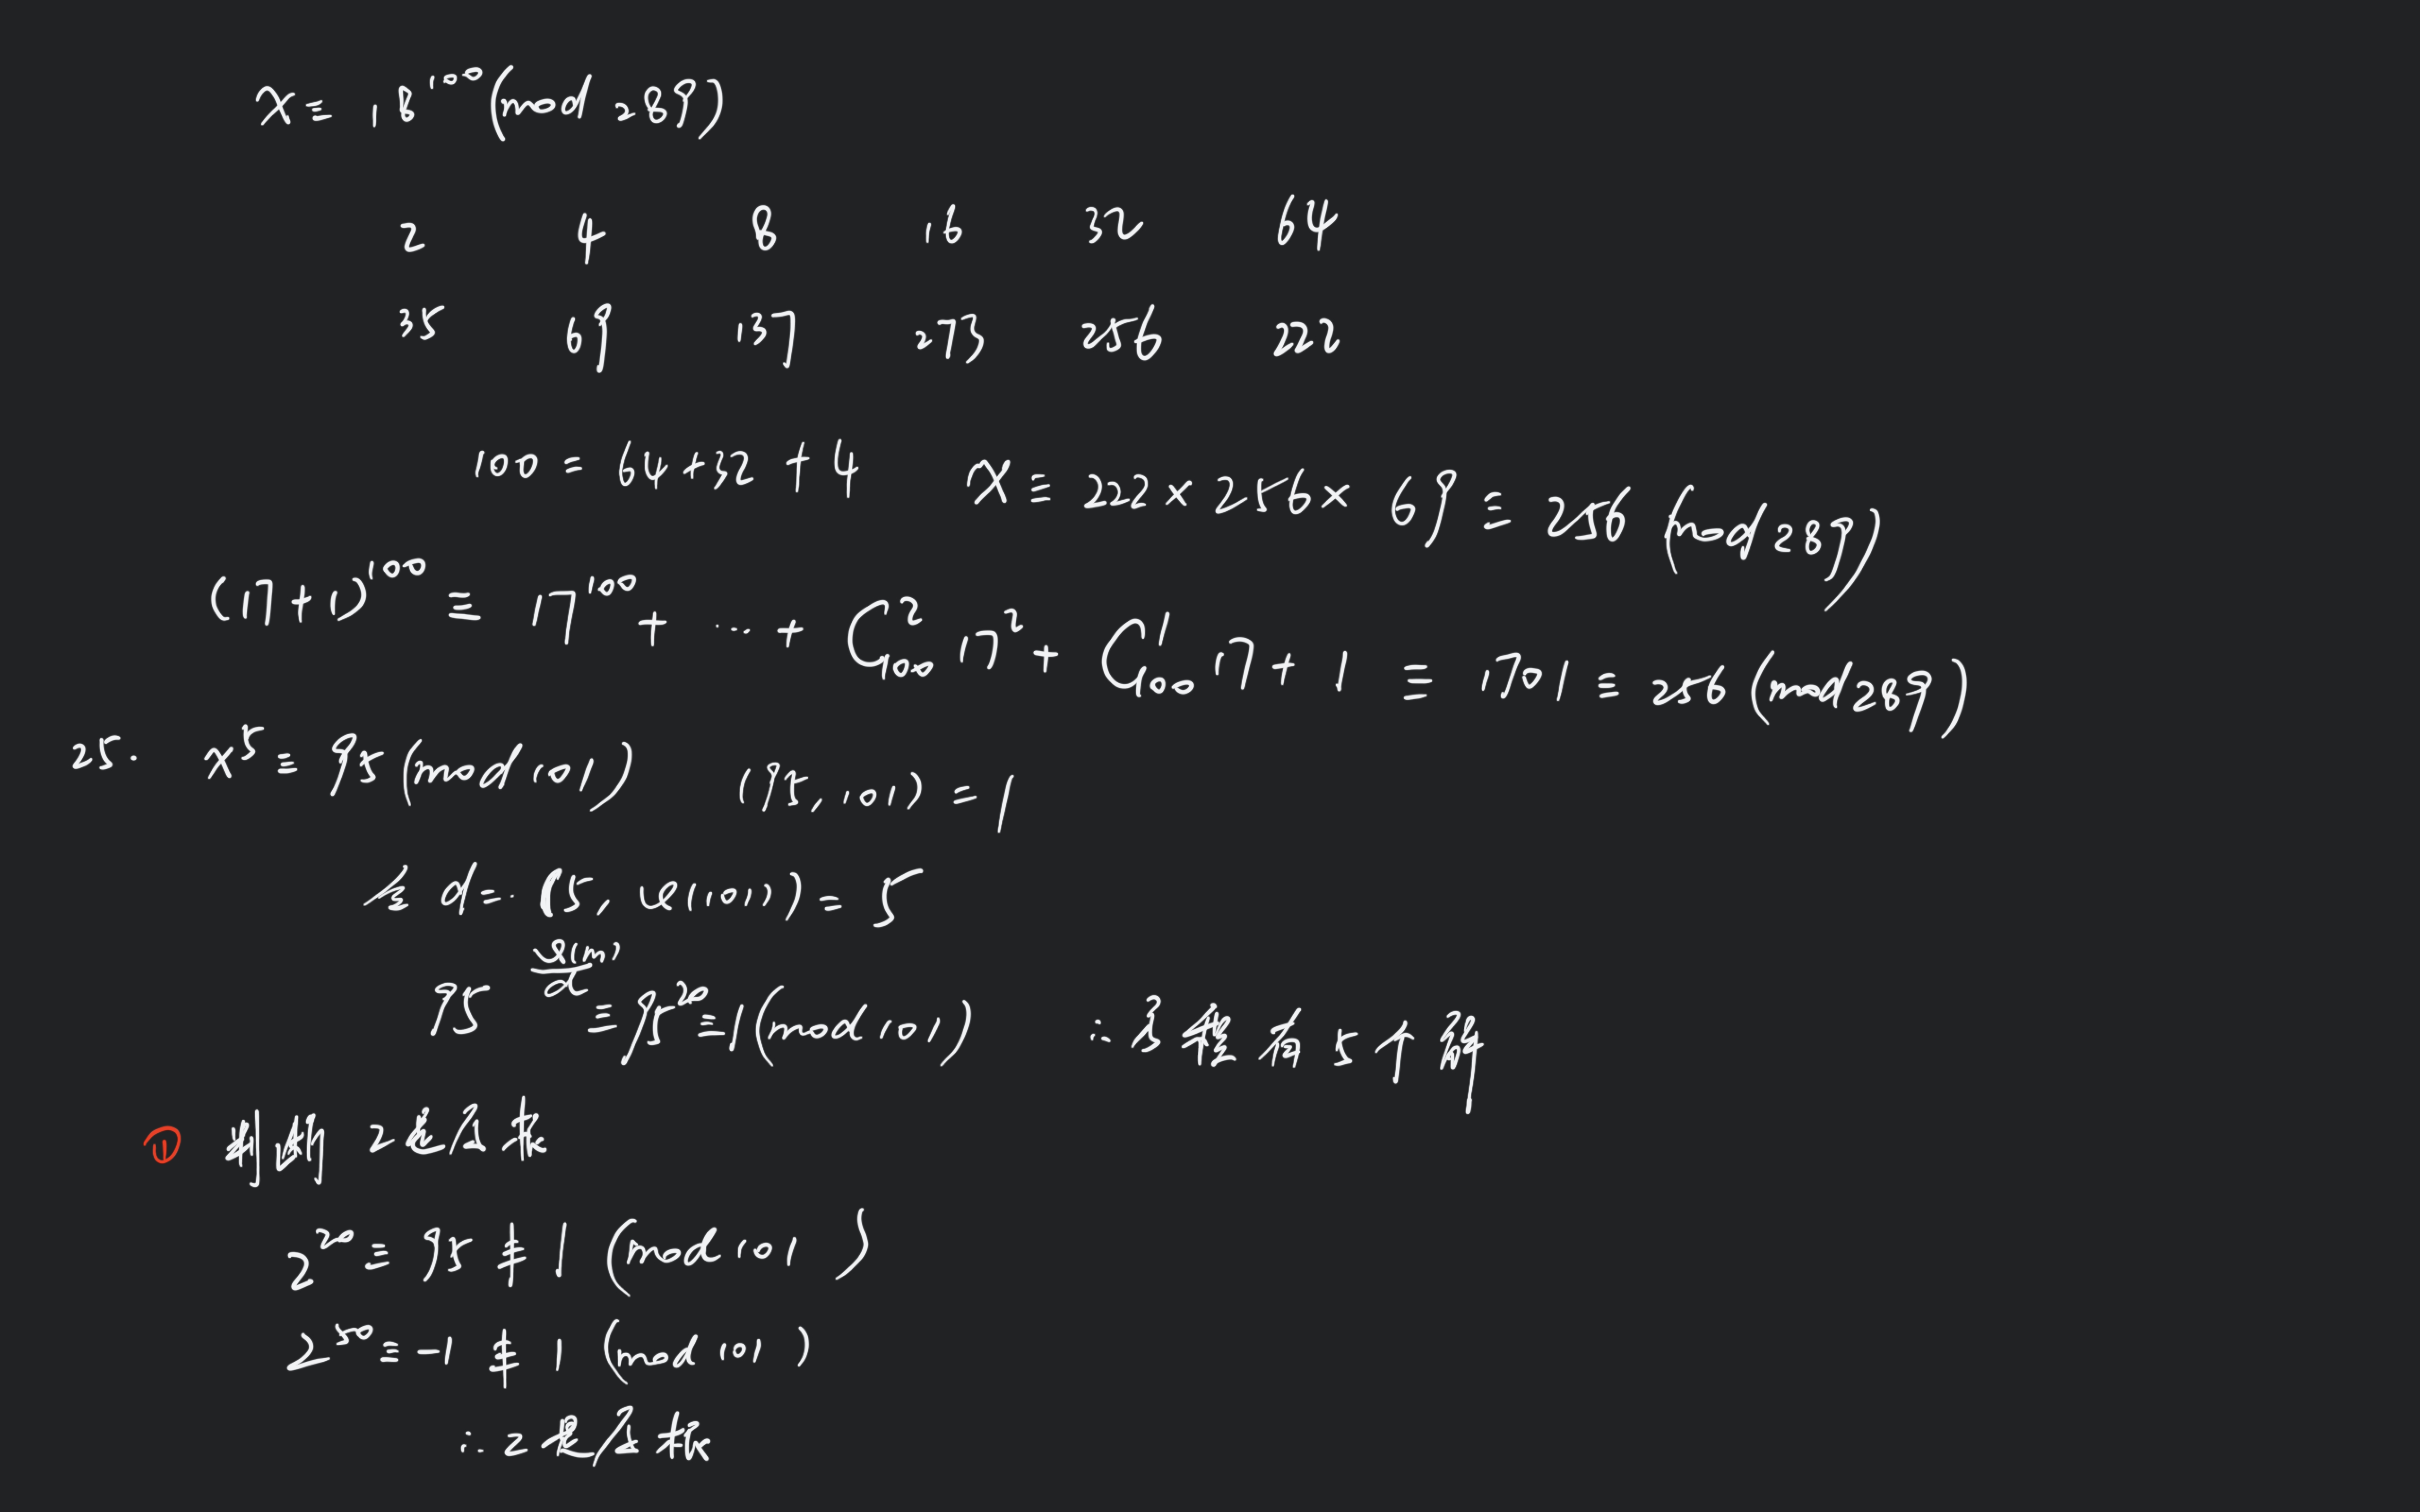 x ≡ 18^100 (mod 289)
2 4 8 16 32 64
35 69 137 273 256 222
100 = 64+32+4 x ≡ 222×256×69 ≡ 256 (mod 289)
(17+1)^100 ≡ 17^100 + ··· + C_100^2 17^2 + C_100^1 17 + 1 ≡ 1701 ≡ 256 (mod 289)
25. x^5 ≡ 95 (mod 101) (95, 101) = 1
令 d = (5, φ(101)) = 5
95^(φ(m)/d) ≡ 95^20 ≡ 1 (mod 101) ∴方程有5个解
① 判断 2是原根
2^20 ≡ 95 ≢ 1 (mod 101)
2^50 ≡ -1 ≢ 1 (mod 101)
∴2是原根